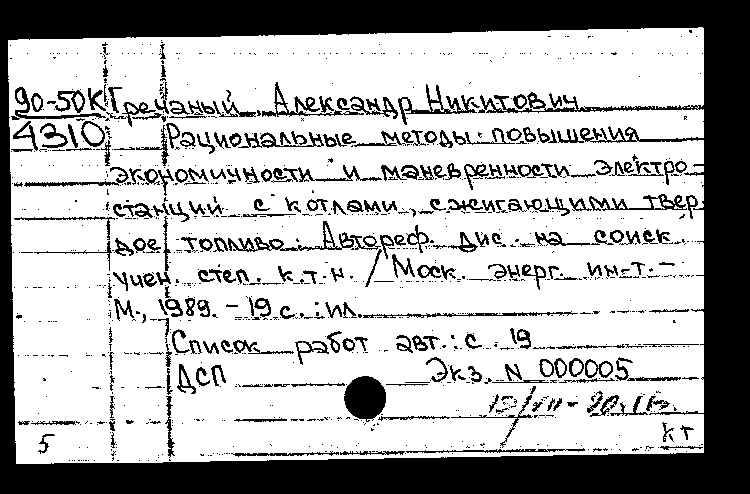 90-50К Гречаный Александр Никитович
4310 Рациональные методы повышения
экономичности и маневренности электро-
станций с котлами, сжигающими твер
дое топливо: Автореф. дис. на соиск.
учен. степ. к.т.н. / Моск. энерг. ин-т. -
М., 1989. - 19 с. : ил.
Список работ авт.: с. 19
ДСП Экз. N 000005
5 кт